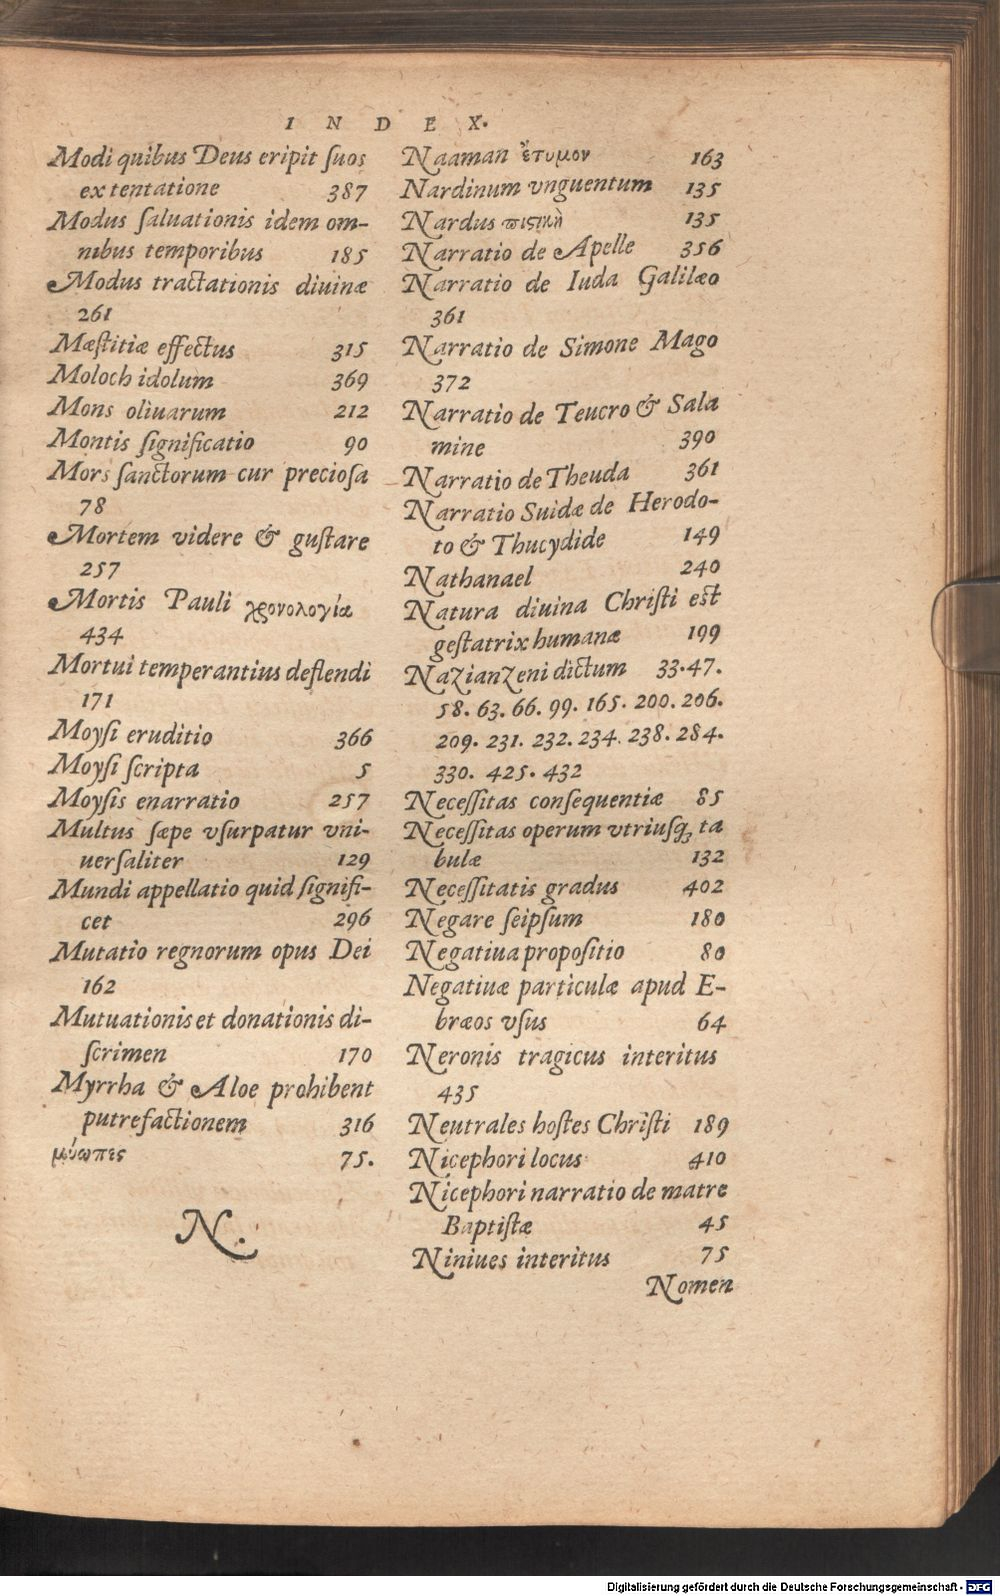 INDEX.
Modi quibus Deus eripit ſuos
ex tentatione 387
Modus ſaluationis idem om-
nibus temporibus 185
Modus tractationis diuinæ
261
Mæſtitiæ effectus 315
Moloch idolum 369
Mons oliuarum 212
Montis ſignificatio 90
Mors ſanctorum cur precioſa
78
Mortem videre & guſtare
257
Mortis Pauli χρονολογία
434
Mortui temperantius deflendi
171
Moyſi eruditio 366
Moyſi ſcripta 5
Moyſis enarratio 257
Multus ſæpe vſurpatur vni-
uerſaliter 129
Mundi appellatio quid ſignifi-
cet 296
Mutatio regnorum opus Dei
162
Mutuationis et donationis di-
ſcrimen 170
Myrrha & Aloe prohibent
putrefactionem 316
μύωπες 75.
N.
Naaman ἔτυμον 163
Nardinum vnguentum 135
Nardus πιςικὴ 135
Narratio de Apelle 356
Narratio de Iuda Galilæo
361
Narratio de Simone Mago
372
Narratio de Teucro & Sala
mine 390
Narratio de Theuda 361
Narratio Suidæ de Herodo-
to & Thucydide 149
Nathanael 240
Natura diuina Chriſti eſt
geſtatrix humanæ 199
Nazianzeni dictum 33. 47.
58. 63. 66. 99. 165. 200. 206.
209. 231. 232. 234. 238. 284.
330. 425. 432
Neceſſitas conſequentiæ 85
Neceſſitas operum vtriuſq; ta
bulæ 132
Neceſſitatis gradus 402
Negare ſeipſum 180
Negatiua propoſitio 80
Negatiuæ particulæ apud E-
bræos vſus 64
Neronis tragicus interitus
435
Neutrales hoſtes Chriſti 189
Nicephori locus 410
Nicephori narratio de matre
Baptiſtæ 45
Niniues interitus 75
Nomen
Digitalisierung gefördert durch die Deutsche Forschungsgemeinschaft - DFG